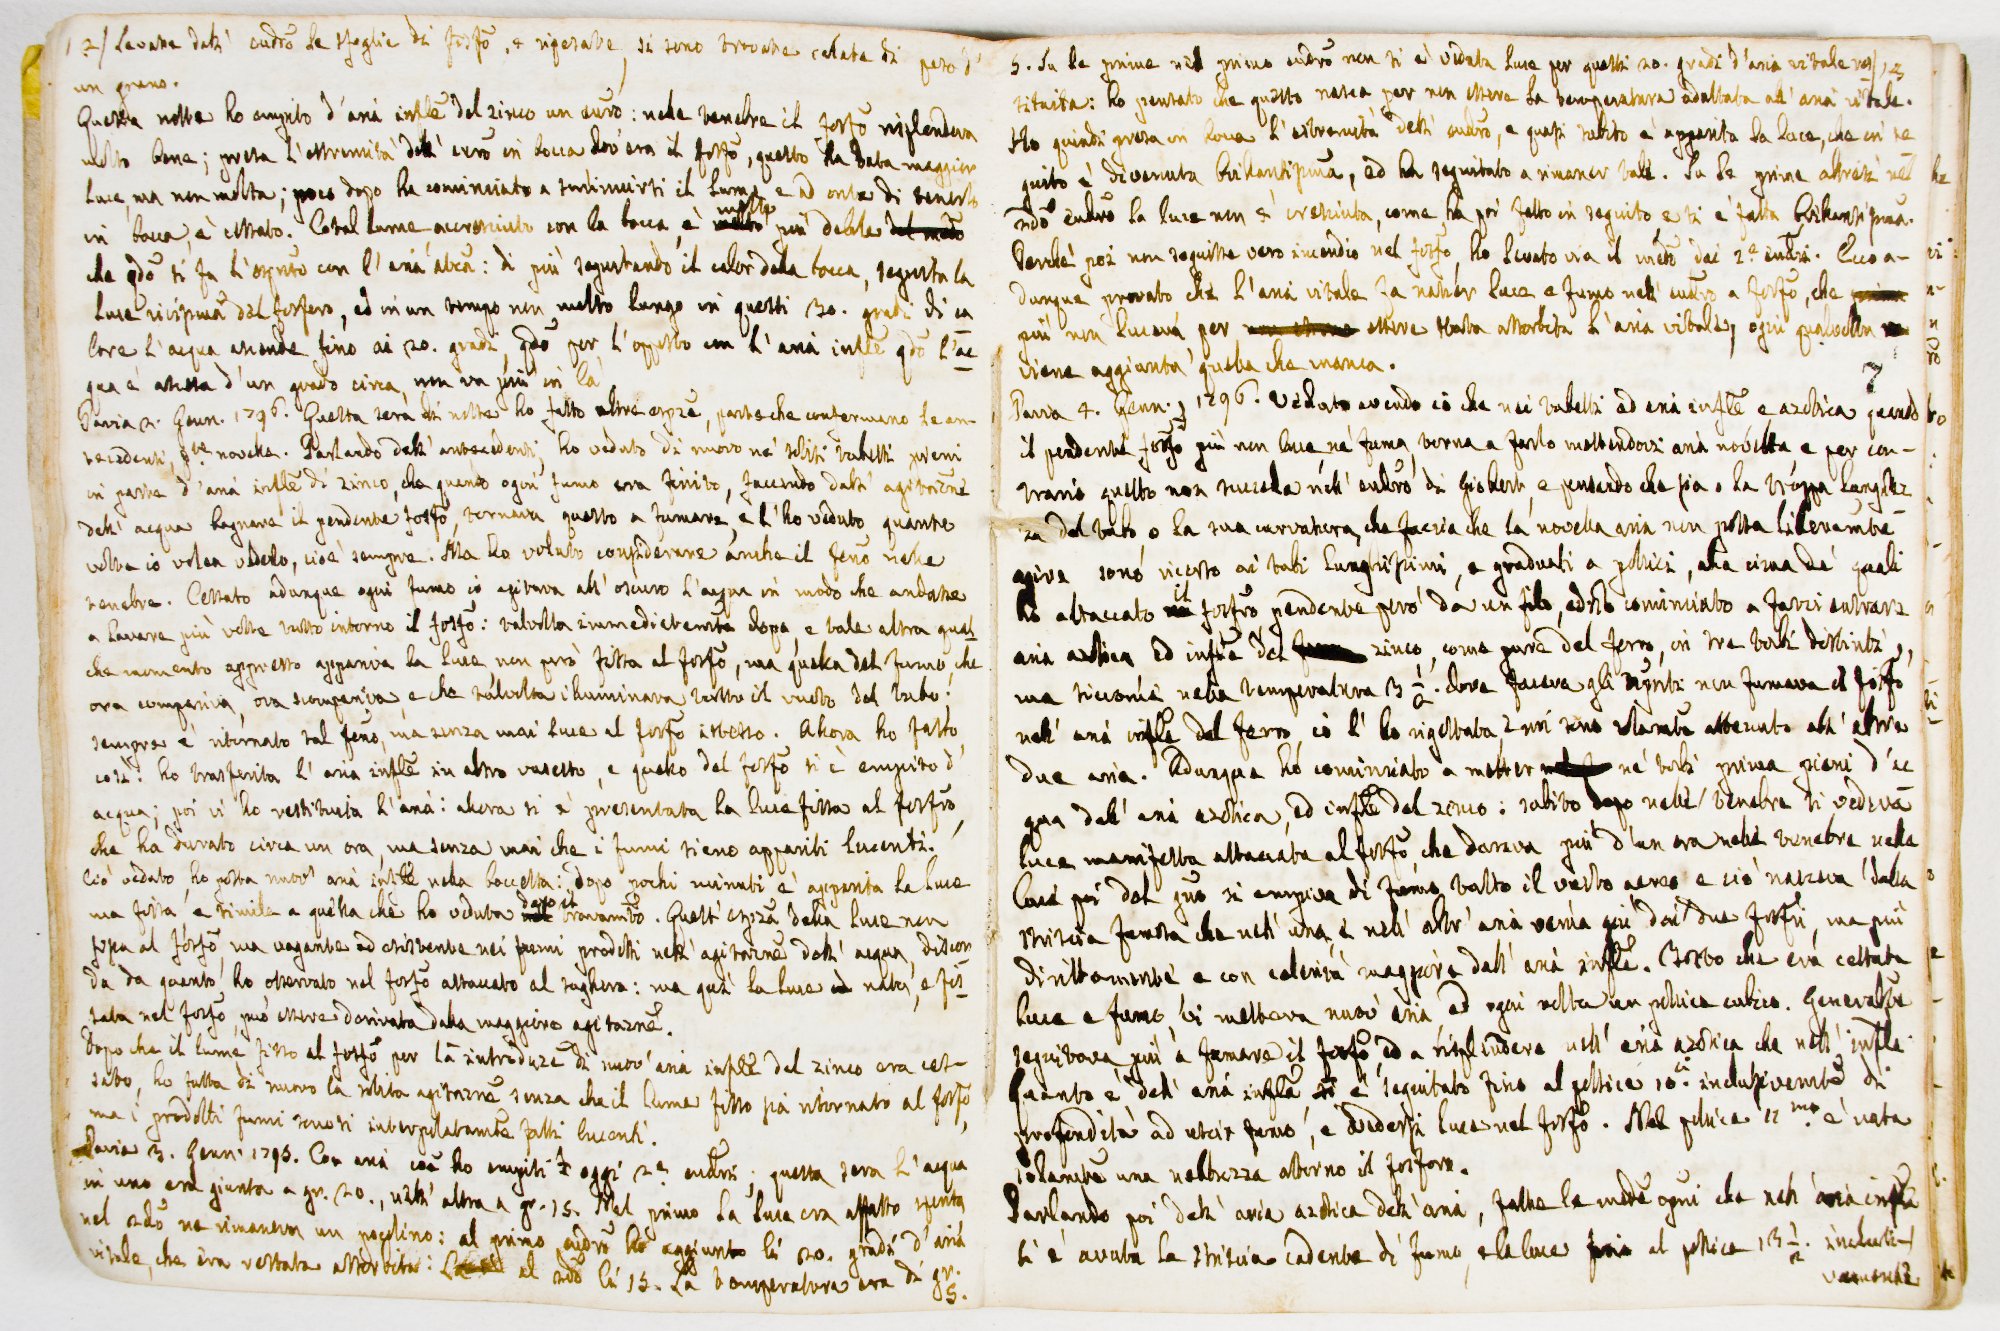 12) Levate dall' eudro le spoglie di fosfo, e ripesate, si sono trovate calate di peso d'
un grano.
Questa notte ho empito d'aria infle del zinco un eudro: nelle tenebre il fosfo risplendeva
molto bene; presa l'estremità dell' eudro in bocca dov'era il fosfo, questo ha data maggior
luce, ma non molta; poco dopo ha cominciato a sminuirsi il lume e ad onta di tenerlo
in bocca, è cessato. Cotal lume accresciuto con la bocca, è molto più debole
che qdo si fa l'esprto con l'aria: di più seguitando il calor della bocca, seguita la
luce del fosforo, ed in un tempo non molto lungo in questi 30. gradi di ca
lore l'acqua ascende fino ai 20. gradi, qdo per l'opposto con l'aria infle qdo l'ac
qua è ascesa d'un grado circa, non va più in là.
Pavia 2. Genn. 1796. Questa sera di notte ho fatto altre esprze, parte che confermano le an-
tecedenti, pte novelle. Parlando delle antecedenti, ho veduto di nuovo ne' soliti tubetti pieni
in parte d'aria infle di zinco, che quando ogni fumo era finito, facendo dall' agitazne
dell' acqua bagnare il pendente fosfo, tornava questo a fumare, e l'ho veduto quante
volte io volea vederlo, cioè sempre. Ma ho voluto considerare anche il feno nelle
tenebre. Cessato adunque ogni fumo io agitava all' oscuro l'acqua in modo che andasse
a lavare più volte tutto intorno il fosfo: talvolta immediatamte dopo, e tale altra qual
che momento appresso appariva la luce non però fissa al fosfo, ma quella del fumo, che
ora compariva, ora scompariva e che talvolta illuminava tutto il vuoto del tubo:
sempre è ritornato tal feno, ma senza mai luce al fosfo istesso. Allora ho fatto
così: ho trasferita l'aria infle in altro vasetto, e quello del fosfo si è empito d'
acqua; poi vi ho restituita l'aria: allora si è presentata la luce fissa al fosfro,
che ha durato circa un ora, ma senza mai che i fumi sieno appariti lucenti.
Ciò vedato, ho posta nuov' aria infle nella boccetta: dopo pochi minuti è apparita la luce
ma fissa e simile a quella che ho veduta dopo il travamto. Quest' esprza della luce non
fissa al fosfo, ma vagante ed esistente nei fumi prodotti nell' agitazne dell' acqua, discor
da da quanto ho osservato nel fosfo attaccato al sughero: ma qui la luce nata, e fis
sata nel fosfo, può essere derivata dalla maggiore agitazne.
Dopo che il lume fisso al fosfo per la introduze di nuov' aria infle del zinco era ces-
sato, ho fatta di nuovo la solita agitazne senza che il lume fisso sia ritornato al fosfo,
ma i prodotti fumi sonosi interpolatamte fatti lucenti.
Pavia 3. Genn. 1795. Con aria coe ho empiti oggi 2e eudri; questa sera l'acqua
in uno era giunta a gr. 20., nell' altro a gr. 15. Nel primo la luce era affatto spenta
nel 2do ne rimaneva un pocolino: al primo eudro ho aggiunto li 20. gradi d'aria
vitale, che era restata assorbita: al 2do li 15. La temperatura era di gr.
5.
5. Su le prime nel primo eudro non si è veduta luce per questi 20. gradi d'aria vitale res) 13
tituita: ho pensato che questo nasca per non essere la temperatura adattata all' aria vitale.
Ho quindi presa in bocca l'estremità dell' eudro, e quasi subito è apparita la luce, che in se
guito è divenuta brillantissima, ed ha seguitato a rimaner tale. Su le prime altresì nel
2do eudro la luce non è cresciuta, come ha poi fatto in seguito e si è fatta brillantissima.
Perchè poi non seguisse vero incendio nel fosfo, ho levato via il vetro dai 2e eudri. Ecco a-
dunque provato che l'aria vitale fa nascer luce e fumo nell' eudro a fosfo, che
più non luceva per essere stata assorbita l'aria vitale, ogni qualvolta
viene aggiunta quella che manca.
7
Pavia 4. Genn. 1796. Veduto avendo ciò che nei tubetti ad aria infle e azotica quando
il pendente fosfo più non luce nè fuma, torna a farlo mettendovi aria novella e per con-
trario questo non succede nell' eudro di Giobert, e pensando che sia o la troppa lunghez
za del tubo o la sua curvatura, che faccia che la novella aria non possa liberamte
agire sono ricorso ai tubi lunghissimi, e graduati a pollici, alla cima de' quali
ho attaccato il fosfro pendente però da un filo, ed ho cominciato a farvi entrare
aria azotica ed infle del zinco, come pure del ferro, in tre tubi distinti,
ma siccome nella temperatura 3 1/2. dove faceva gli esprti non fumava il fosfo
nell' aria infle del ferro, io l'ho rigettata e mi sono solamte attenuto all' altre
due arie. Adunque ho cominciato a metter ne' tubi prima pieni d'ac
qua dell' aria azotica, ed infle del zinco: subito dopo nelle tenebre si vedeva
luce manifesta attaccata al fosfo che durava più d'un ora nelle tenebre nella
luce poi del gno si empiva di fumo tutto il vasto aereo e ciò nasceva dalla
striscia fumosa che nell' una, e nell' altr' aria venia giù dai due fosfri, ma più
dirittamente e con celerità maggiore dall' aria infle. Tosto che era cessata
luce e fumo, vi metteva nuov' aria ad ogni volta un pollice cubico. Generalmte
seguitava più a fumare il fosfo ed a risplendere nell' aria azotica che nell' infle.
Quanto è dell' aria infle si è seguitato fino al pollice 10mo inclusivamte di
profondità ad uscir fumo, e vedersi luce nel fosfo. Nel pollice 11mo è nata
solamte una nebbiuzza attorno il fosforo.
Parlando poi dell' aria azotica dell' aria, fatte le medme ogni che nell' aria infle
si è avuta la striscia cadente di fumo, e la luce fino al pollice 13 1/2. inclusi-
vamente